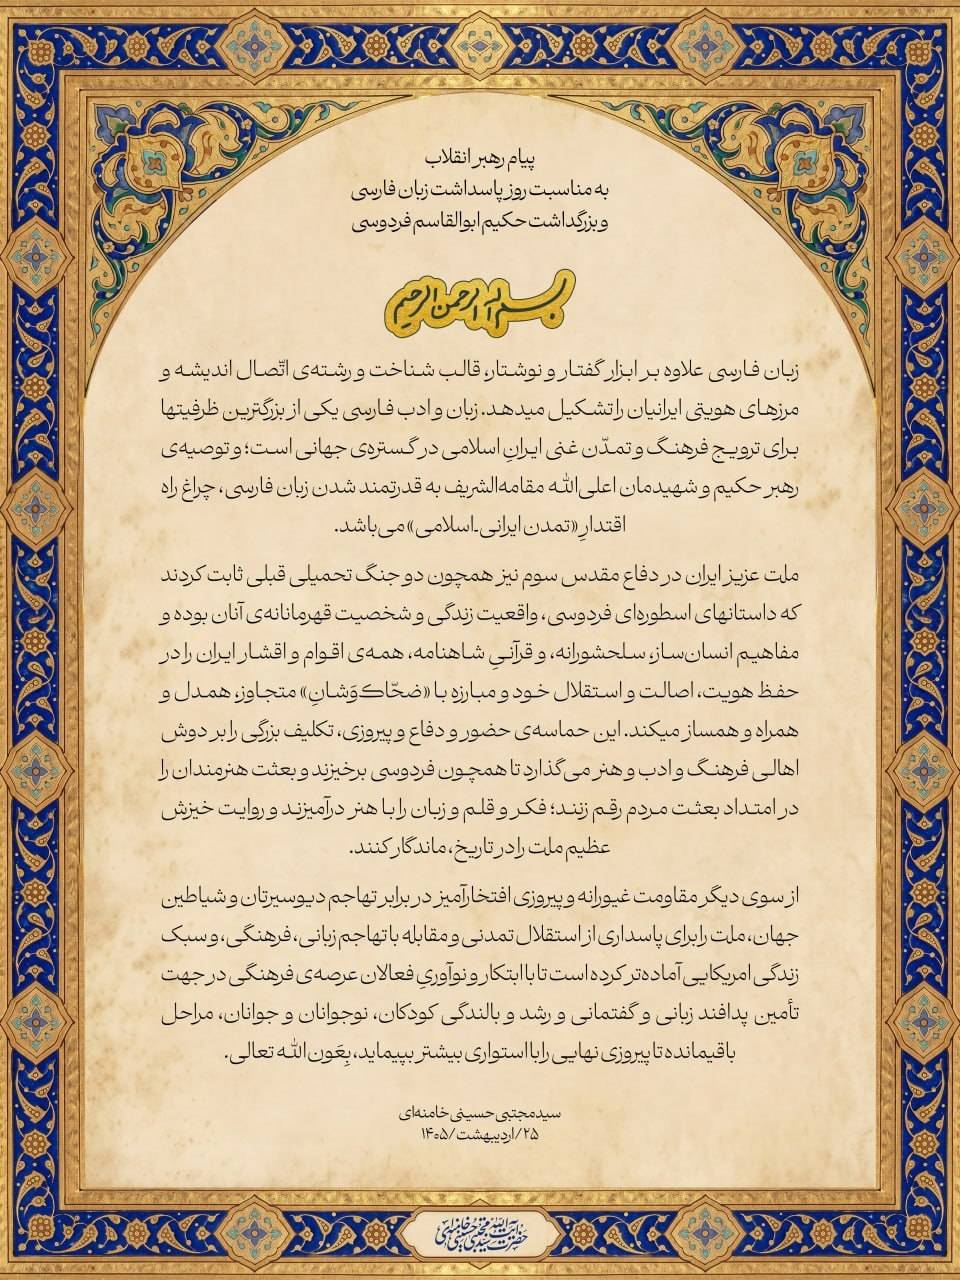 پیام رهبر انقلاب
به مناسبت روز پاسداشت زبان فارسی
و بزرگداشت حکیم ابوالقاسم فردوسی
بسم الله الرحمن الرحیم
زبان فارسی علاوه بر ابزار گفتار و نوشتار، قالب شناخت و رشته‌ی اتّصال اندیشه و
مرزهای هویتی ایرانیان را تشکیل میدهد. زبان و ادب فارسی یکی از بزرگترین ظرفیتها
برای ترویج فرهنگ و تمدّن غنی ایرانِ اسلامی در گستره‌ی جهانی است؛ و توصیه‌ی
رهبر حکیم و شهیدمان اعلی‌الله مقامه‌الشریف به قدرتمند شدن زبان فارسی، چراغ راه
اقتدارِ «تمدن ایرانی-اسلامی» می‌باشد.
ملت عزیز ایران در دفاع مقدس سوم نیز همچون دو جنگ تحمیلی قبلی ثابت کردند
که داستانهای اسطوره‌ای فردوسی، واقعیت زندگی و شخصیت قهرمانانه‌ی آنان بوده و
مفاهیم انسان‌ساز، سلحشورانه، و قرآنیِ شاهنامه، همه‌ی اقوام و اقشار ایران را در
حفظ هویت، اصالت و استقلال خود و مبارزه با «ضحّاک‌وَشانِ» متجاوز، همدل و
همراه و همساز میکند. این حماسه‌ی حضور و دفاع و پیروزی، تکلیف بزرگی را بر دوش
اهالی فرهنگ و ادب و هنر می‌گذارد تا همچون فردوسی برخیزند و بعثت هنرمندان را
در امتداد بعثت مردم رقم زنند؛ فکر و قلم و زبان را با هنر درآمیزند و روایت خیزش
عظیم ملت را در تاریخ، ماندگار کنند.
از سوی دیگر مقاومت غیورانه و پیروزی افتخارآمیز در برابر تهاجم دیوسیرتان و شیاطین
جهان، ملت را برای پاسداری از استقلال تمدنی و مقابله با تهاجم زبانی، فرهنگی، و سبک
زندگی امریکایی آماده‌تر کرده است تا با ابتکار و نوآوریِ فعالان عرصه‌ی فرهنگی در جهت
تأمین پدافند زبانی و گفتمانی و رشد و بالندگی کودکان، نوجوانان و جوانان، مراحل
باقیمانده تا پیروزی نهایی را با استواری بیشتر بپیماید، بِعَون‌الله تعالی.
سیدمجتبی حسینی خامنه‌ای
۲۵/اردیبهشت/۱۴۰۵
حضرت آیت‌الله سید مجتبی حسینی خامنه‌ای